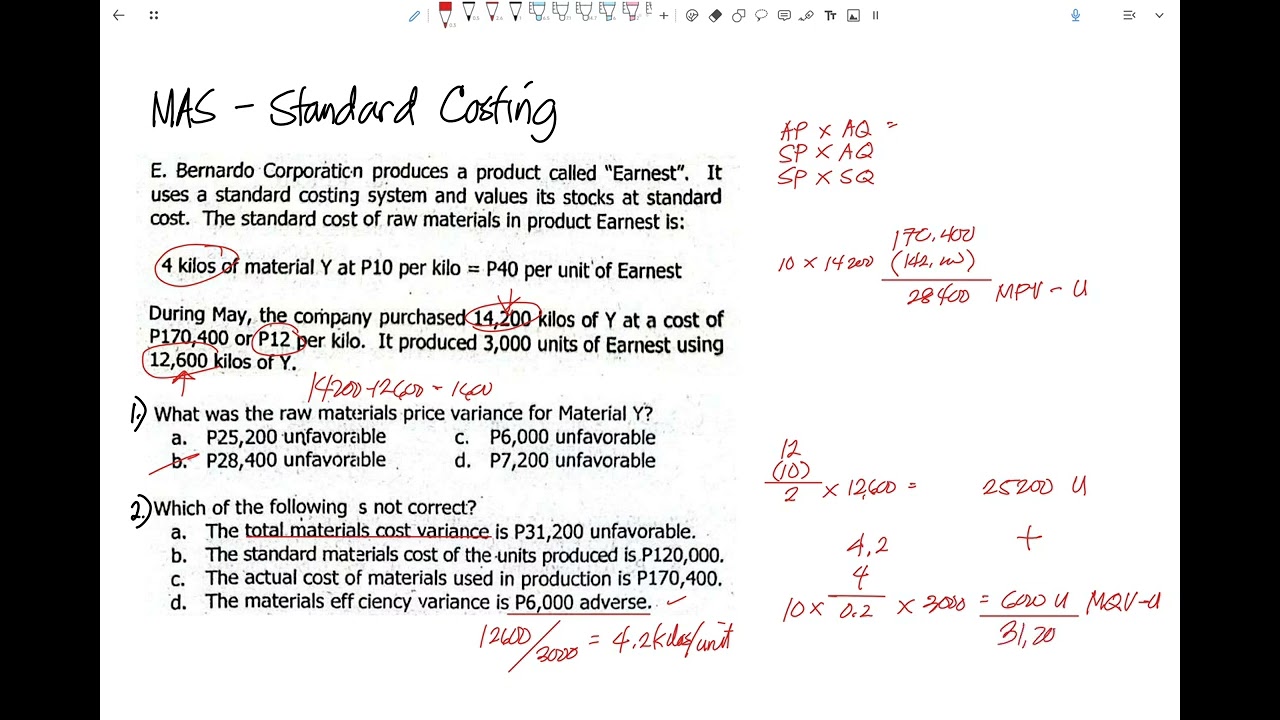 MAS - Standard Costing
E. Bernardo Corporation produces a product called "Earnest". It
uses a standard costing system and values its stocks at standard
cost. The standard cost of raw materials in product Earnest is:
4 kilos of material Y at P10 per kilo = P40 per unit of Earnest
During May, the company purchased 14,200 kilos of Y at a cost of
P170,400 or P12 per kilo. It produced 3,000 units of Earnest using
12,600 kilos of Y.
14200-12600 = 1600
1.) What was the raw materials price variance for Material Y?
a. P25,200 unfavorable
c. P6,000 unfavorable
b. P28,400 unfavorable
d. P7,200 unfavorable
2.) Which of the following s not correct?
a. The total materials cost variance is P31,200 unfavorable.
b. The standard materials cost of the units produced is P120,000.
c. The actual cost of materials used in production is P170,400.
d. The materials eff ciency variance is P6,000 adverse.
12600/3000 = 4.2 kilos/unit
AP x AQ =
SP x AQ
SP x SQ
170,400
10 x 14200 (142,000)
28400 MPV - U
12
(10)
2 x 12,600 = 25200 U
4.2 +
4
10 x 0.2 x 3000 = 6000 U MQV-U
31,20